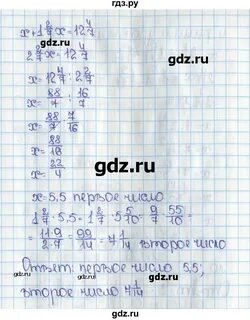 гдз.ру
x + 1 2/7 x = 12 4/7
2 2/7 x = 12 4/7
x = 12 4/7 : 2 2/7
x = 88/7 : 16/7
x = 88/7 · 7/16
x = 88/16
x = 22/4
gdz.ru
x = 5,5 первое число
1 2/7 · 5,5 = 1 2/7 · 5 5/10 = 9/7 · 55/10 =
= 11·9/2·7 = 99/14 = 7 1/14 второе число
Ответ: первое число 5,5;
второе число 7 1/14
gdz.ru